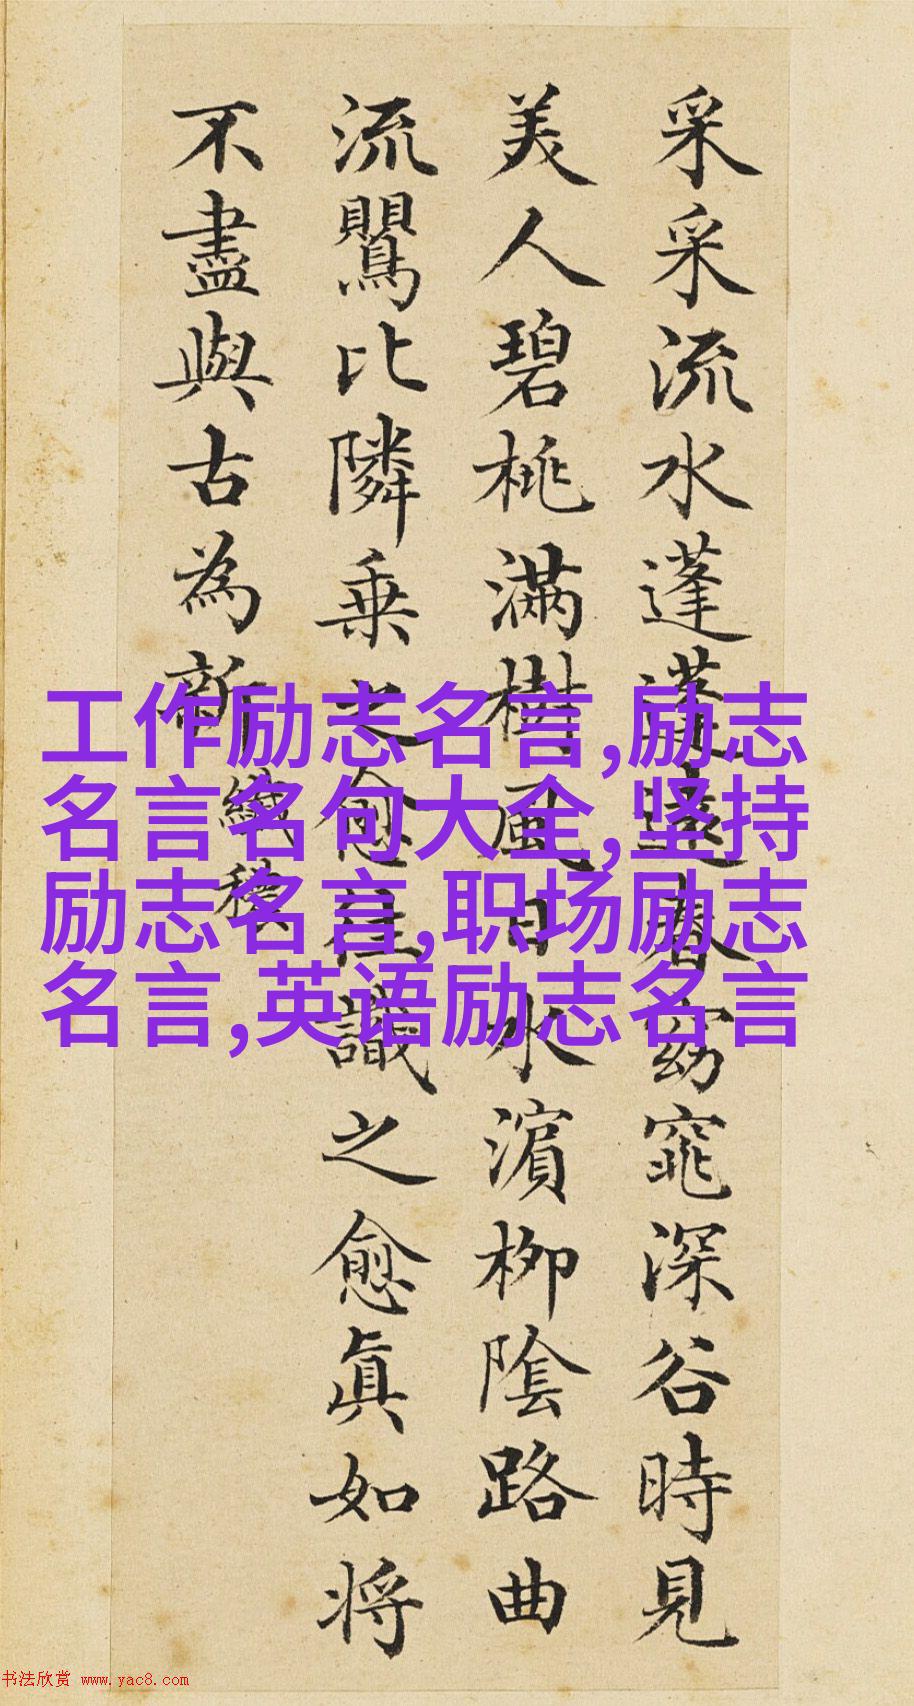 采采流水蓬蓬遠春窈窕深谷時見
美人碧桃滿樹風日水濱柳隂路曲
流鸎比隣乗之愈往識之愈眞如将
不盡與古為新
纖穠
工作励志名言,励志
名言名句大全,坚持
励志名言,职场励志
名言,英语励志名言
书法欣赏 www.yac8.com